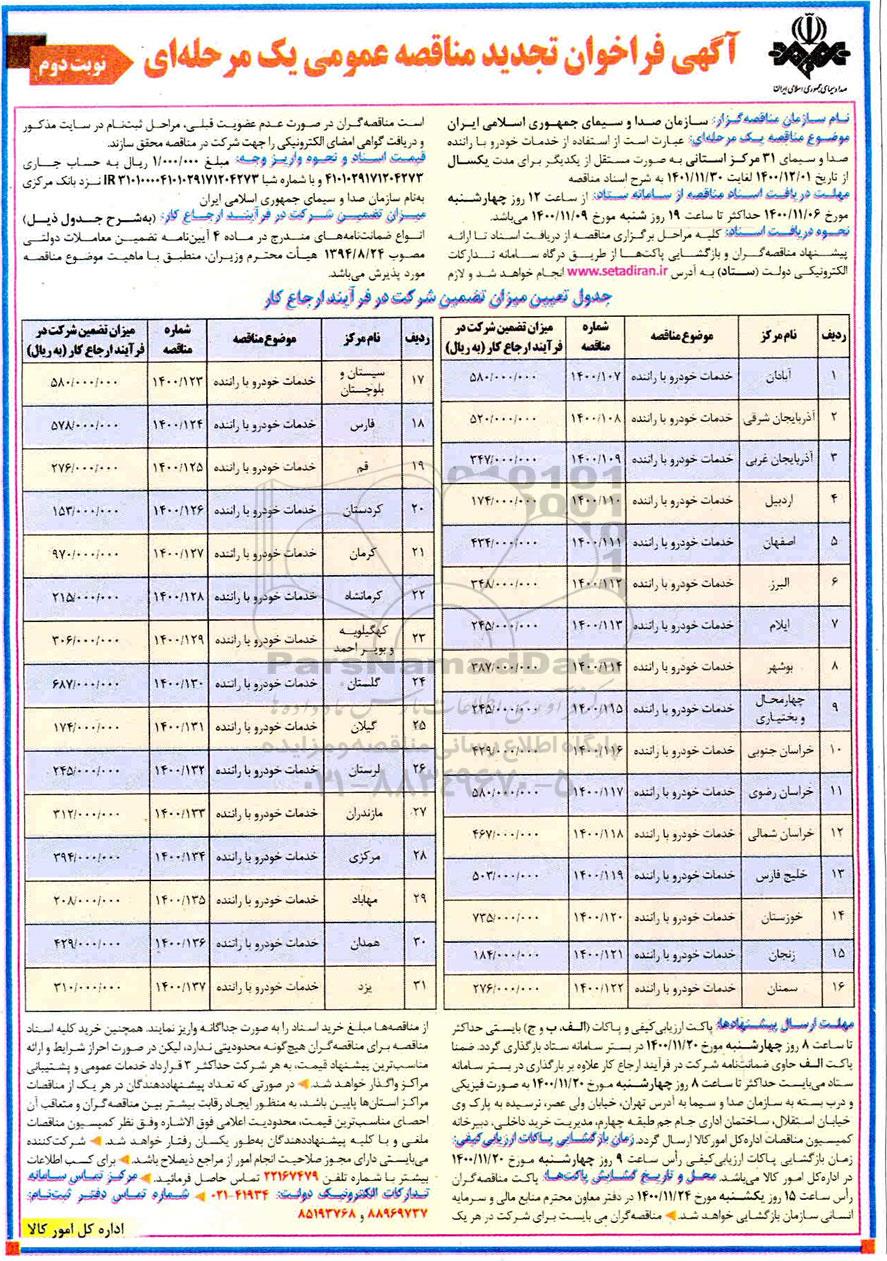 آگهی فراخوان تجدید مناقصه عمومی یک مرحله‌ای
نوبت دوم
صدا و سیمای جمهوری اسلامی ایران
نام سازمان مناقصه‌گزار: سازمان صدا و سیمای جمهوری اسلامی ایران
موضوع مناقصه یک مرحله‌ای: عبارت است از استفاده از خدمات خودرو با راننده
صدا و سیمای ۳۱ مرکز استانی به صورت مستقل از یکدیگر برای مدت یکسال
از تاریخ ۱۴۰۰/۱۲/۰۱ لغایت ۱۴۰۱/۱۱/۳۰ به شرح اسناد مناقصه
مهلت دریافت اسناد مناقصه از سامانه ستاد: از ساعت ۱۲ روز چهارشنبه
مورخ ۱۴۰۰/۱۱/۰۶ حداکثر تا ساعت ۱۹ روز شنبه مورخ ۱۴۰۰/۱۱/۰۹ می‌باشد.
نحوه دریافت اسناد: کلیه مراحل برگزاری مناقصه از دریافت اسناد تا ارائه
پیشنهاد مناقصه‌گران و بازگشایی پاکت‌ها از طریق درگاه سامانه تدارکات
الکترونیکی دولت (ستاد) به آدرس www.setadiran.ir انجام خواهد شد و لازم
است مناقصه‌گران در صورت عدم عضویت قبلی، مراحل ثبت‌نام در سایت مذکور
و دریافت گواهی امضای الکترونیکی را جهت شرکت در مناقصه محقق سازند.
قیمت اسناد و نحوه واریز وجه: مبلغ ۱/۰۰۰/۰۰۰ ریال به حساب جاری
۴۱۰۱۰۲۹۱۷۱۲۰۴۲۷۳ و با شماره شبا IR ۳۱۰۱۰۰۰۰۴۱۰۱۰۲۹۱۷۱۲۰۴۲۷۳ نزد بانک مرکزی
به‌نام سازمان صدا و سیمای جمهوری اسلامی ایران
میزان تضمین شرکت در فرآیند ارجاع کار: (به‌شرح جدول ذیل)
انواع ضمانت‌نامه‌های مندرج در ماده ۴ آیین‌نامه تضمین معاملات دولتی
مصوب ۱۳۹۴/۸/۲۴ هیأت محترم وزیران، منطبق با ماهیت موضوع مناقصه
مورد پذیرش می‌باشد.
جدول تعیین میزان تضمین شرکت در فرآیند ارجاع کار
ردیف نام مرکز موضوع مناقصه شماره مناقصه میزان تضمین شرکت در فرآیند ارجاع کار (به ریال)
۱ آبادان خدمات خودرو با راننده ۱۴۰۰/۱۰۷ ۵۸۰/۰۰۰/۰۰۰
۲ آذربایجان شرقی خدمات خودرو با راننده ۱۴۰۰/۱۰۸ ۵۲۰/۰۰۰/۰۰۰
۳ آذربایجان غربی خدمات خودرو با راننده ۱۴۰۰/۱۰۹ ۳۴۷/۰۰۰/۰۰۰
۴ اردبیل خدمات خودرو با راننده ۱۴۰۰/۱۱۰ ۱۷۴/۰۰۰/۰۰۰
۵ اصفهان خدمات خودرو با راننده ۱۴۰۰/۱۱۱ ۴۳۴/۰۰۰/۰۰۰
۶ البرز خدمات خودرو با راننده ۱۴۰۰/۱۱۲ ۳۴۸/۰۰۰/۰۰۰
۷ ایلام خدمات خودرو با راننده ۱۴۰۰/۱۱۳ ۲۴۵/۰۰۰/۰۰۰
۸ بوشهر خدمات خودرو با راننده ۱۴۰۰/۱۱۴ ۳۸۷/۰۰۰/۰۰۰
۹ چهارمحال و بختیاری خدمات خودرو با راننده ۱۴۰۰/۱۱۵ ۲۴۵/۰۰۰/۰۰۰
۱۰ خراسان جنوبی خدمات خودرو با راننده ۱۴۰۰/۱۱۶ ۴۲۹/۰۰۰/۰۰۰
۱۱ خراسان رضوی خدمات خودرو با راننده ۱۴۰۰/۱۱۷ ۵۸۰/۰۰۰/۰۰۰
۱۲ خراسان شمالی خدمات خودرو با راننده ۱۴۰۰/۱۱۸ ۴۶۷/۰۰۰/۰۰۰
۱۳ خلیج فارس خدمات خودرو با راننده ۱۴۰۰/۱۱۹ ۵۰۳/۰۰۰/۰۰۰
۱۴ خوزستان خدمات خودرو با راننده ۱۴۰۰/۱۲۰ ۷۳۵/۰۰۰/۰۰۰
۱۵ زنجان خدمات خودرو با راننده ۱۴۰۰/۱۲۱ ۱۸۴/۰۰۰/۰۰۰
۱۶ سمنان خدمات خودرو با راننده ۱۴۰۰/۱۲۲ ۲۷۶/۰۰۰/۰۰۰
ردیف نام مرکز موضوع مناقصه شماره مناقصه میزان تضمین شرکت در فرآیند ارجاع کار (به ریال)
۱۷ سیستان و بلوچستان خدمات خودرو با راننده ۱۴۰۰/۱۲۳ ۵۸۰/۰۰۰/۰۰۰
۱۸ فارس خدمات خودرو با راننده ۱۴۰۰/۱۲۴ ۵۷۸/۰۰۰/۰۰۰
۱۹ قم خدمات خودرو با راننده ۱۴۰۰/۱۲۵ ۲۷۶/۰۰۰/۰۰۰
۲۰ کردستان خدمات خودرو با راننده ۱۴۰۰/۱۲۶ ۱۵۳/۰۰۰/۰۰۰
۲۱ کرمان خدمات خودرو با راننده ۱۴۰۰/۱۲۷ ۹۷۰/۰۰۰/۰۰۰
۲۲ کرمانشاه خدمات خودرو با راننده ۱۴۰۰/۱۲۸ ۲۱۵/۰۰۰/۰۰۰
۲۳ کهگیلویه و بویر احمد خدمات خودرو با راننده ۱۴۰۰/۱۲۹ ۳۰۶/۰۰۰/۰۰۰
۲۴ گلستان خدمات خودرو با راننده ۱۴۰۰/۱۳۰ ۶۸۷/۰۰۰/۰۰۰
۲۵ گیلان خدمات خودرو با راننده ۱۴۰۰/۱۳۱ ۱۷۴/۰۰۰/۰۰۰
۲۶ لرستان خدمات خودرو با راننده ۱۴۰۰/۱۳۲ ۲۴۵/۰۰۰/۰۰۰
۲۷ مازندران خدمات خودرو با راننده ۱۴۰۰/۱۳۳ ۳۱۲/۰۰۰/۰۰۰
۲۸ مرکزی خدمات خودرو با راننده ۱۴۰۰/۱۳۴ ۳۹۴/۰۰۰/۰۰۰
۲۹ مهاباد خدمات خودرو با راننده ۱۴۰۰/۱۳۵ ۲۰۸/۰۰۰/۰۰۰
۳۰ همدان خدمات خودرو با راننده ۱۴۰۰/۱۳۶ ۴۲۹/۰۰۰/۰۰۰
۳۱ یزد خدمات خودرو با راننده ۱۴۰۰/۱۳۷ ۳۱۰/۰۰۰/۰۰۰
ParsNamadData
پایگاه اطلاع رسانی مناقصه و مزایده
۰۲۱-۸۸۳۴۹۶۷۰-۵
مهلت ارسال پیشنهادها: پاکت ارزیابی کیفی و پاکات (الف، ب و ج) بایستی حداکثر
تا ساعت ۸ روز چهارشنبه مورخ ۱۴۰۰/۱۱/۲۰ در بستر سامانه ستاد بارگذاری گردد. ضمنا
پاکت الف حاوی ضمانت‌نامه شرکت در فرآیند ارجاع کار علاوه بر بارگذاری در بستر سامانه
ستاد می‌بایست حداکثر تا ساعت ۸ روز چهارشنبه مورخ ۱۴۰۰/۱۱/۲۰ به صورت فیزیکی
و درب بسته به سازمان صدا و سیما به آدرس تهران، خیابان ولی عصر، نرسیده به پارک وی
خیابان استقلال، ساختمان اداری جام جم طبقه چهارم، مدیریت خرید داخلی، دبیرخانه
کمیسیون مناقصات اداره‌کل امور کالا ارسال گردد. زمان بازگشایی پاکات ارزیابی کیفی:
زمان بازگشایی پاکات ارزیابی کیفی رأس ساعت ۹ روز چهارشنبه مورخ ۱۴۰۰/۱۱/۲۰
در اداره‌کل امور کالا می‌باشد. محل و تاریخ گشایش پاکت‌ها: پاکت مناقصه‌گران
رأس ساعت ۱۵ روز یکشنبه مورخ ۱۴۰۰/۱۱/۲۴ در دفتر معاون محترم منابع مالی و سرمایه
انسانی سازمان بازگشایی خواهد شد. مناقصه‌گران می بایست برای شرکت در هر یک
از مناقصه‌ها مبلغ خرید اسناد را به صورت جداگانه واریز نمایند. همچنین خرید کلیه اسناد
مناقصه برای مناقصه‌گران هیچ‌گونه محدودیتی ندارد، لیکن در صورت احراز شرایط و ارائه
مناسب‌ترین پیشنهاد قیمت، به هر شرکت حداکثر ۳ قرارداد خدمات عمومی و پشتیبانی
مراکز واگذار خواهد شد. در صورتی که تعداد پیشنهاددهندگان در هر یک از مناقصات
مراکز استان‌ها پایین باشد، به منظور ایجاد رقابت بیشتر بین مناقصه‌گران و متعاقب آن
احصای مناسب‌ترین قیمت، محدودیت اعلامی فوق الاشاره وفق نظر کمیسیون مناقصات
ملغی و با کلیه پیشنهاددهندگان به‌طور یکسان رفتار خواهد شد. شرکت‌کننده
می‌بایستی دارای مجوز صلاحیت انجام امور از مراجع ذیصلاح باشد. برای کسب اطلاعات
بیشتر با شماره تلفن ۲۲۱۶۷۴۷۹ تماس حاصل فرمائید. مرکز تماس سامانه
تدارکات الکترونیک دولت: ۴۱۹۳۴-۰۲۱ شماره تماس دفتر ثبت‌نام:
۸۸۹۶۹۷۳۷ و ۸۵۱۹۳۷۶۸
اداره کل امور کالا